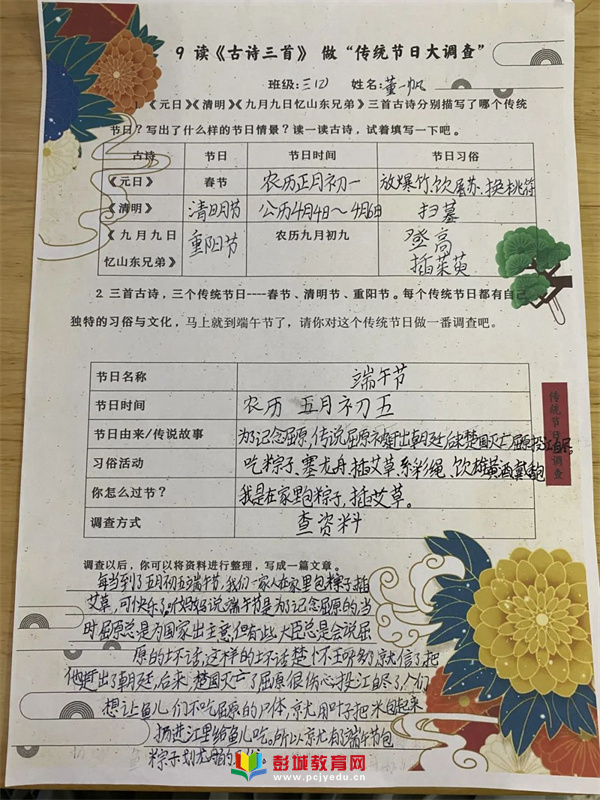 9 读《古诗三首》 做“传统节日大调查”
班级:三(2) 姓名:董一帆
1.《元日》《清明》《九月九日忆山东兄弟》三首古诗分别描写了哪个传统
节日？写出了什么样的节日情景？读一读古诗，试着填写一下吧。
古诗 节日 节日时间 节日习俗
《元日》 春节 农历正月初一 放爆竹、饮屠苏、换桃符
《清明》 清明节 公历4月4日～4月6日 扫墓
《九月九日 重阳节 农历九月初九 登高
忆山东兄弟》 插茱萸
2 三首古诗，三个传统节日----春节、清明节、重阳节。每个传统节日都有自己
独特的习俗与文化，马上就到端午节了，请你对这个传统节日做一番调查吧。
节日名称 端午节
节日时间 农历 五月初五
节日由来/传说故事 为了记念屈原,传说屈原被赶出朝廷后来楚国灭亡屈原投江自尽。
习俗活动 吃粽子、赛龙舟、插艾草、系彩绳、饮雄黄酒
你怎么过节？ 我是在家里包粽子，插艾草。
调查方式 查资料
传统节日大调查
调查以后，你可以将资料进行整理，写成一篇文章。
每当到了五月初五端午节,我们一家人在家里包粽子插
艾草,可快乐了,听妈妈说端午节是为了记念屈原的,当
时屈原总是为国家出主意,但有些大臣总是会说屈
原的坏话,这样的坏话楚怀王听多了就信了把
他赶出了朝廷,后来,楚国灭亡了屈原很伤心投江自尽了,人们
想让鱼儿们不吃屈原的尸体,就用叶子把米包起来
扔进江里给鱼儿吃。所以就有了端午节包
粽子划龙舟的
彭城教育网
www.pcjyedu.cn